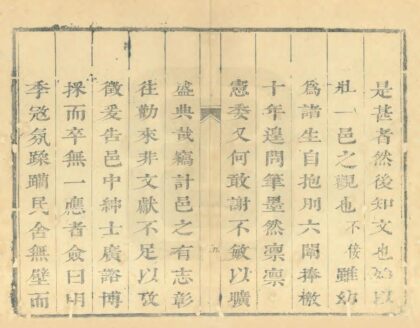 是甚者然後知文也始以
壯一邑之觀也不佞雖幼
為諸生自抱刖六闈捧檄
十年遑問筆墨然稟稟
憲委又何敢謝不敏以曠
盛典哉竊計邑之有志彰
往勸來非文獻不足以攷
徵爰告邑中紳士廣諮博
採而卒無一應者僉曰明
季寇氛蹂躪民舍無壁而